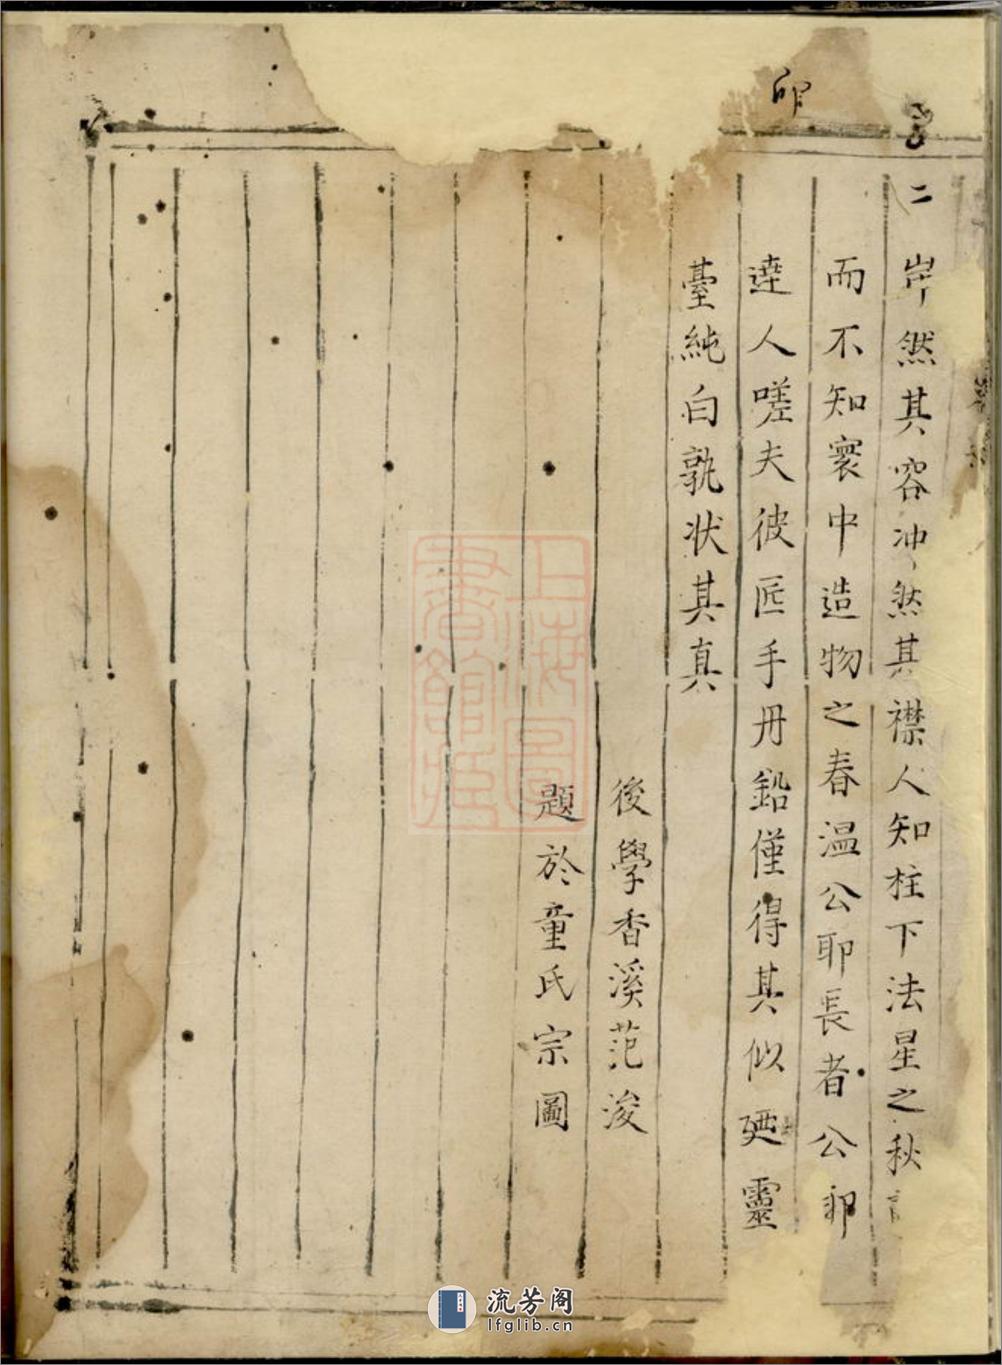 二
岸然其容冲然其襟人知柱下法星之秋
而不知寰中造物之春温公耶長者公耶
達人嗟夫彼匠手丹鉛僅得其似廼靈
臺純白孰状其真
後學香溪范浚
題於童氏宗圖
上海圖書館藏
流芳阁
lfglib.cn